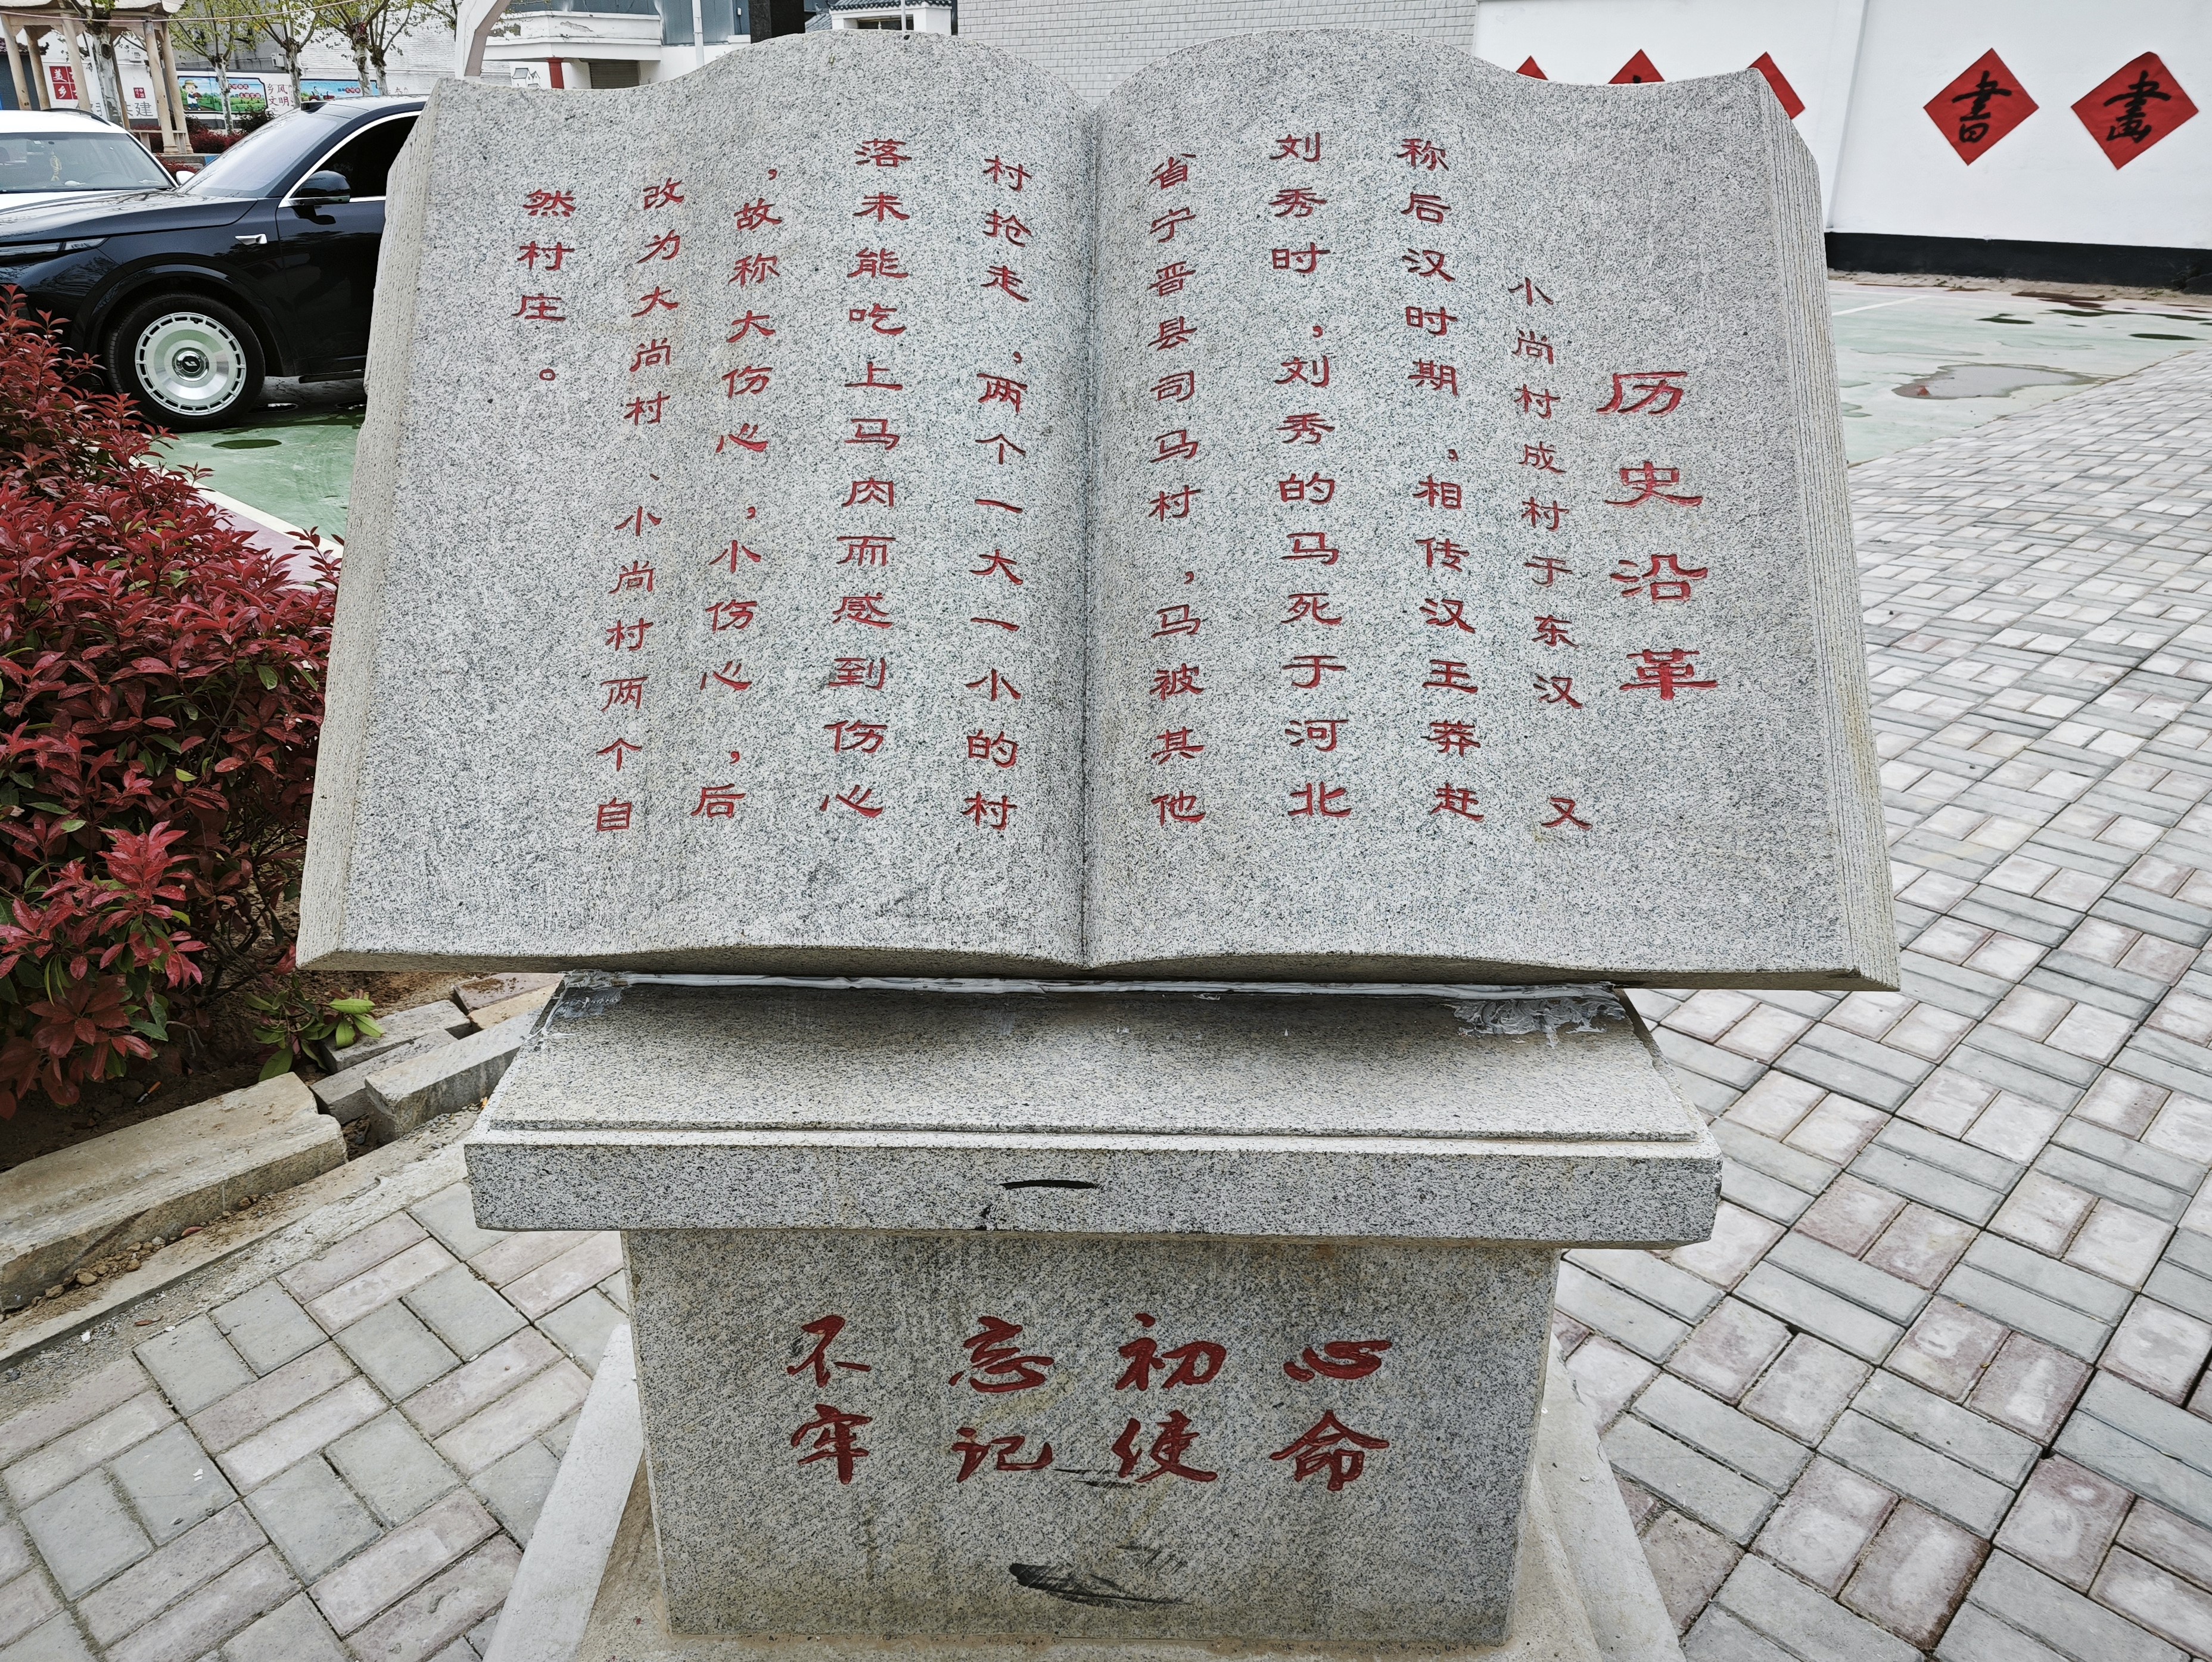 历史沿革
小尚村成村于东汉 又
称后汉时期、相传汉王莽赶
刘秀时，刘秀的马死于河北
省宁晋县司马村，马被其他
村抢走，两个一大一小的村
落未能吃上马肉而感到伤心
，故称大伤心，小伤心，后
改为大尚村、小尚村两个自
然村庄。
不忘初心
牢记使命
書
畫